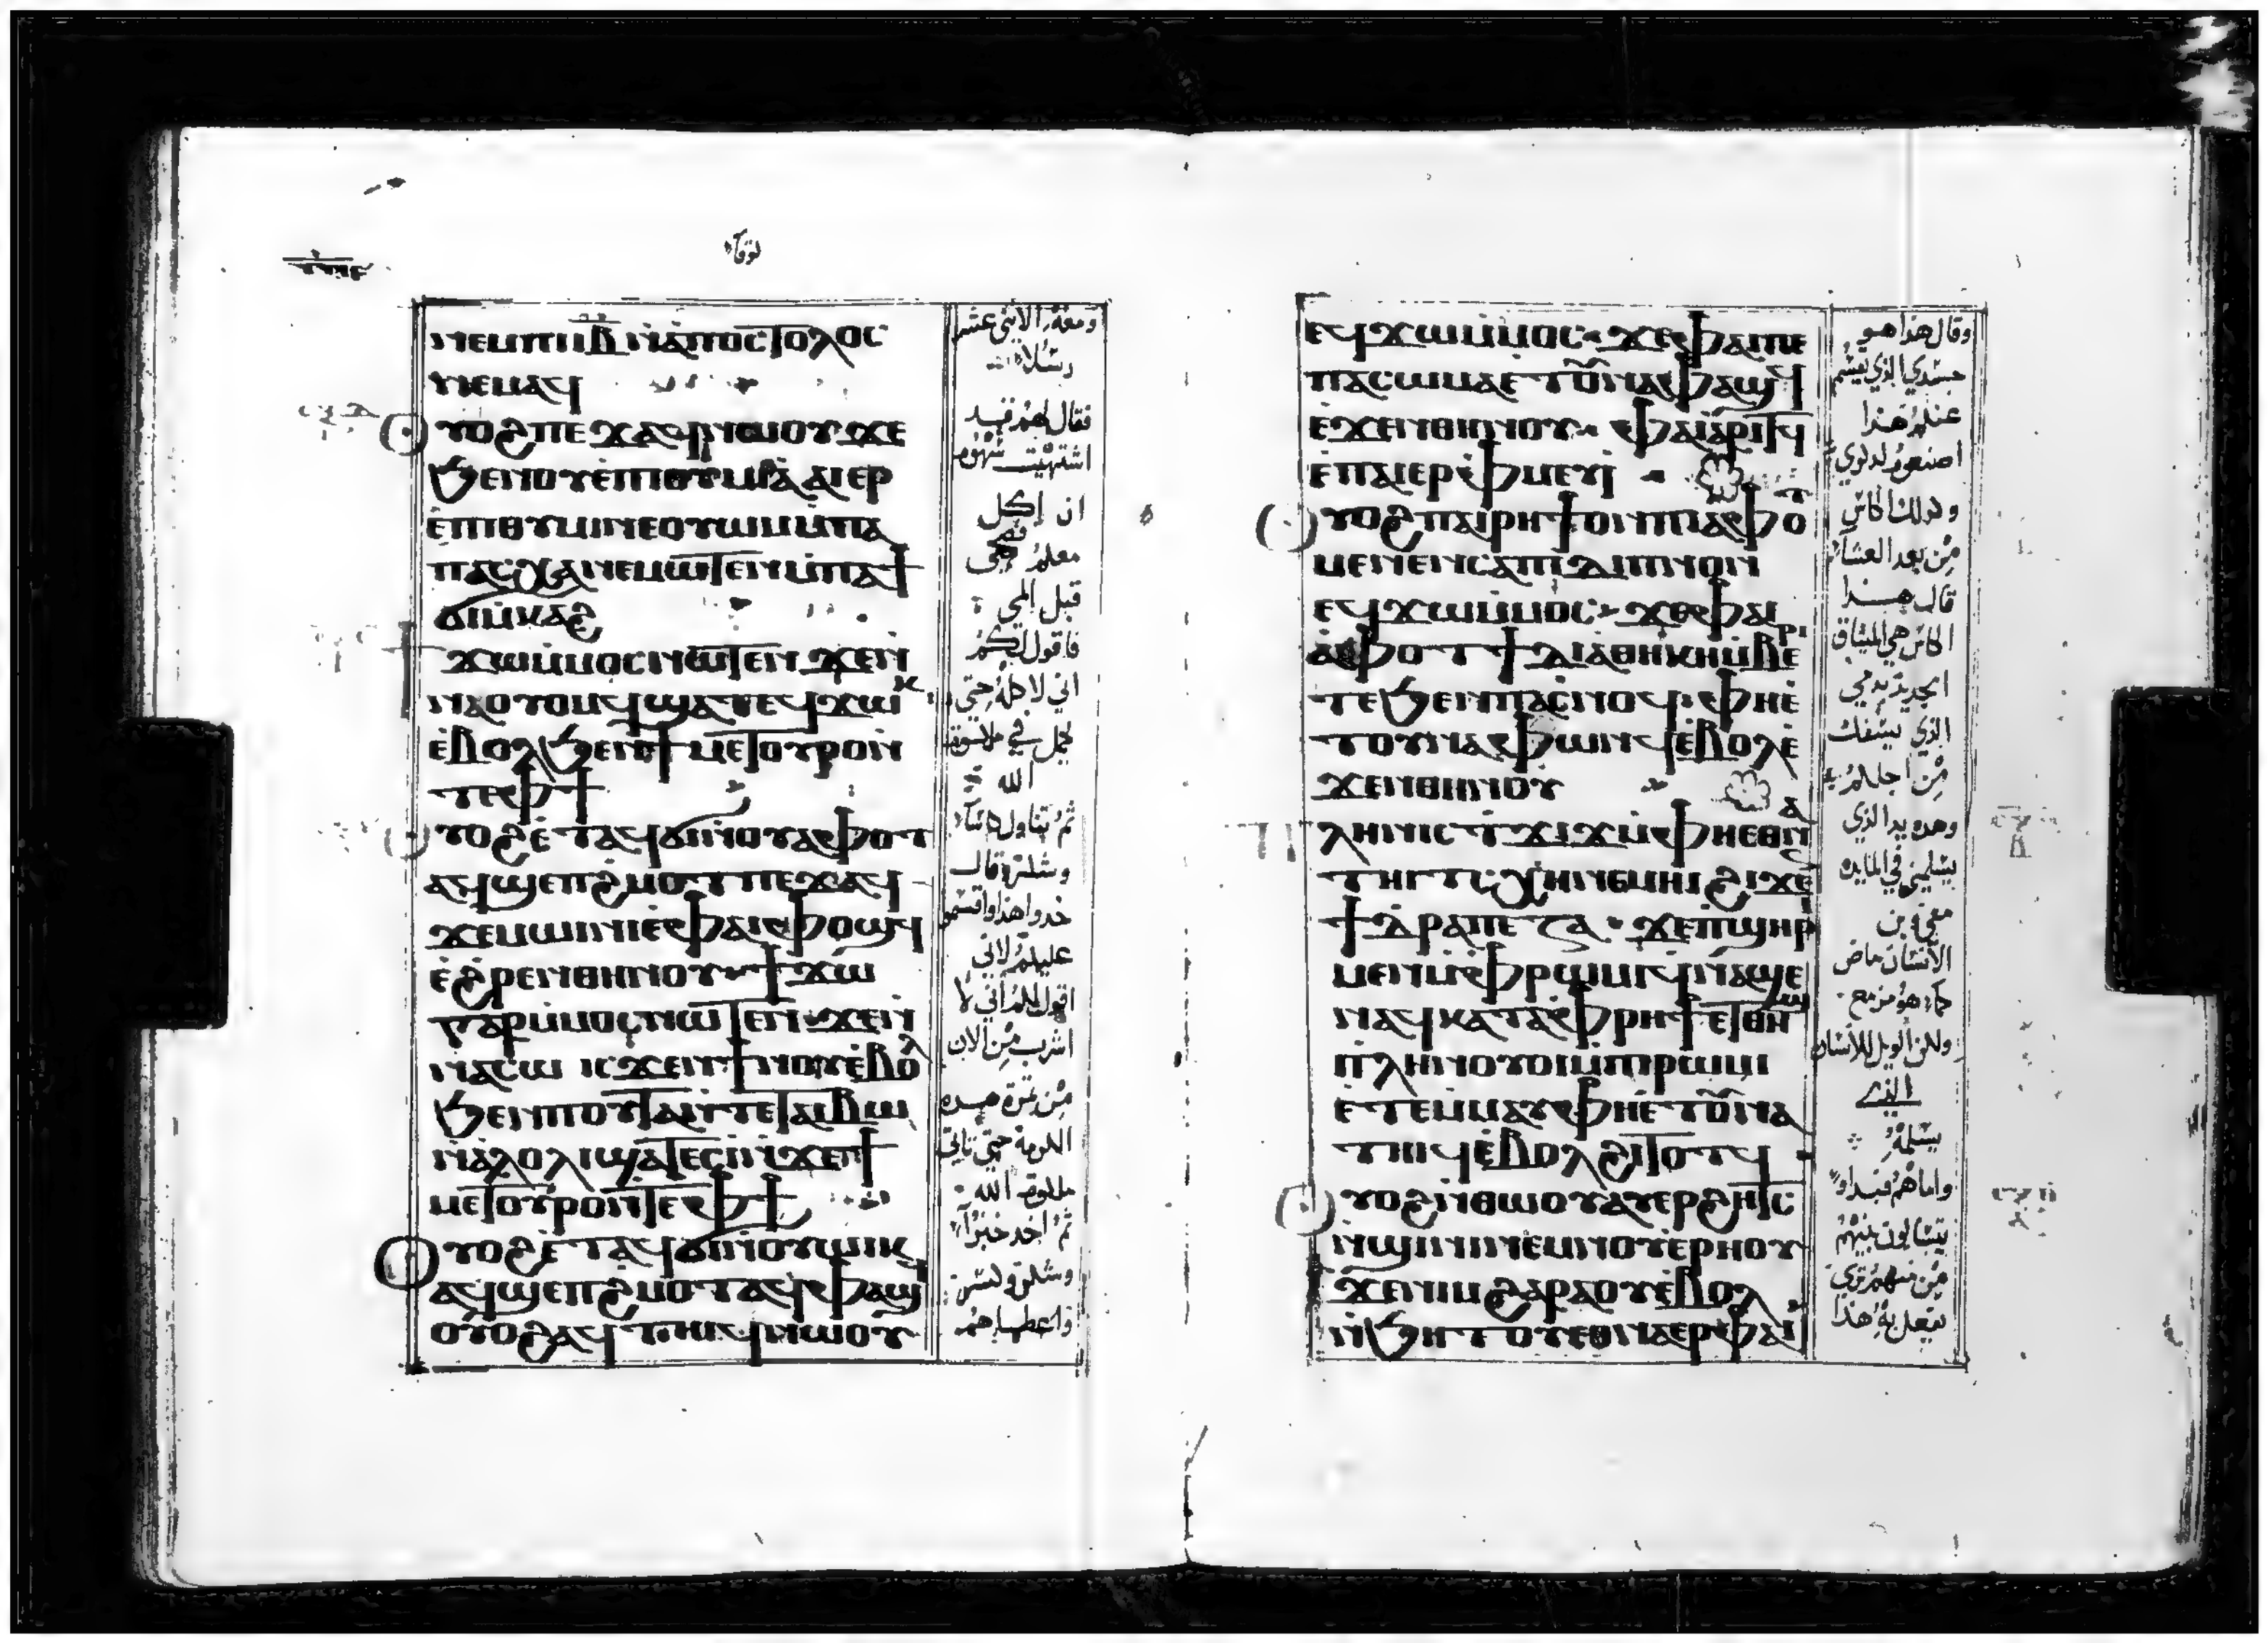 لوقا
ⲛⲉⲙⲡⲓⲓⲃ̄ ⲛ̀ⲁⲡⲟⲥⲧⲟⲗⲟⲥ
ⲛⲉⲙⲁϥ
ⲟⲩⲟϩⲡⲉϫⲁϥⲛⲱⲟⲩϫⲉ
ϧⲉⲛⲟⲩⲉ̀ⲡⲓⲑⲩⲙⲓⲁ̀ ⲁⲓⲉⲣ
ⲉ̀ⲡⲓⲑⲩⲙⲓⲛⲉⲟⲩⲱⲙⲙ̀ⲡⲁ
ⲡⲁⲥⲭⲁⲛⲉⲙⲱⲧⲉⲛⲙ̀ⲡⲁϯ
ϭⲓⲙ̀ⲕⲁϩ
ϯϫⲱⲙ̀ⲙⲟⲥⲛⲱⲧⲉⲛ ϫⲉⲛ̀
ⲛⲁⲟⲩⲟⲙϥϣⲁⲧⲉϥϫⲱⲕ
ⲉ̀ⲃⲟⲗϧⲉⲛϯⲙⲉⲧⲟⲩⲣⲟⲛ̀
ⲧⲉⲫϯ
ⲟⲩⲟϩⲉ̀ⲧⲁϥϭⲓⲛ̀ⲟⲩⲁⲫⲟⲧ
ⲁϥϣⲉⲡϩⲙⲟⲧⲡⲉϫⲁϥ
ϫⲉⲙⲱⲓⲛⲓⲉ̀ⲫⲁⲓⲫⲟϣϥ
ⲉ̀ϩⲣⲉⲛⲑⲏⲛⲟⲩ ϯϫⲱ
ⲅⲁⲣⲙ̀ⲙⲟⲥⲛⲱⲧⲉⲛ ϫⲉⲛ̀
ⲛⲁⲥⲱ ⲓⲥϫⲉⲛϯⲛⲟⲩⲉ̀ⲃⲟⲗ
ϧⲉⲛⲡⲟⲩⲧⲁϩⲛ̀ⲧⲉⲧⲁⲓⲃⲱ
ⲛ̀ⲁⲗⲟⲗⲓϣⲁⲧⲉⲥⲓ̀ⲛ̀ϫⲉϯ
ⲙⲉⲧⲟⲩⲣⲟⲛ̀ⲧⲉⲫϯ
ⲟⲩⲟϩⲉ̀ⲧⲁϥϭⲓⲛ̀ⲟⲩⲱⲓⲕ
ⲁϥϣⲉⲡϩⲙⲟⲧⲁϥⲫⲁϣϥ
ⲟⲩⲟϩⲁϥⲧⲏⲓϥⲛⲱⲟⲩ
ومعه الاثني عشر
رسلا
فقال لهم قد
اشتهيت شهوه
ان اكل
معكم
قبل المي
فاقول لكم
اني لا اكله حتي
يكمل في ملكوت
الله
ثم تناول كاسا
وشكر وقال
خدوا هذا واقسموا
عليكم لاني
اقول لكم اني لا
اشرب من الان
من تمرة هده
الكرمة حتي تاتي
ملكوت الله
ثم اخد خبزا
وشكر وكسر
واعطاهم
ⲉϥϫⲱⲙ̀ⲙⲟⲥ ϫⲉⲫⲁⲓⲡⲉ
ⲡⲁⲥⲱⲙⲁⲉ̀ⲧⲟⲩⲛⲁⲫⲁϣϥ
ⲉ̀ϫⲉⲛⲑⲏⲛⲟⲩ ⲫⲁⲓⲁ̀ⲣⲓⲧϥ
ⲉ̀ⲡⲁⲉⲣⲫⲙⲉⲩⲓ̀
ⲟⲩⲟϩⲡⲁⲓⲣⲏϯⲟⲛⲡⲓⲁⲫⲟⲧ
ⲙⲉⲛⲉⲛⲥⲁⲡⲓⲇⲓⲡⲛⲟⲛ
ⲉϥϫⲱⲙ̀ⲙⲟⲥ ϫⲉⲫⲁⲓ
ⲁ̀ⲫⲟⲧ ϯⲇⲓⲁⲑⲏⲕⲏⲙ̀ⲃⲉⲣⲓ
ⲧⲉϧⲉⲛⲡⲁⲥⲛⲟϥ ⲫⲏⲉ̀
ⲧⲟⲩⲛⲁⲫⲱⲛϥⲉ̀ⲃⲟⲗⲉ̀
ϫⲉⲛⲑⲏⲛⲟⲩ
ⲡⲗⲏⲛⲓⲥϯϫⲓϫⲙ̀ⲫⲏⲉⲑⲛⲁ
ⲧⲏⲓⲧ ⲭⲏⲛⲉⲙⲏⲓ ϩⲓϫⲉⲛ
ϯⲇⲣⲁⲡⲉⲍⲁ ϫⲉⲡϣⲏⲣⲓ
ⲙⲉⲛⲙ̀ⲫⲣⲱⲙⲓϥⲛⲁϣⲉ
ⲛⲁϥⲕⲁⲧⲁⲫⲣⲏϯⲉⲧⲑⲏϣ
ⲡⲗⲏⲛⲟⲩⲟⲓⲙ̀ⲡⲓⲣⲱⲙⲓ
ⲉ̀ⲧⲉⲙ̀ⲙⲁⲩⲫⲏⲉ̀ⲧⲟⲩⲛⲁ
ⲧⲏⲓϥⲉ̀ⲃⲟⲗϩⲓⲧⲟⲧϥ
ⲟⲩⲟϩⲛ̀ⲑⲱⲟⲩⲁⲩⲉⲣϩⲏⲧⲥ
ⲛ̀ϣⲓⲛⲓⲛⲉⲙⲛⲟⲩⲉⲣⲏⲟⲩ
ϫⲉⲛⲓⲙϩⲁⲣⲁⲟⲩⲉ̀ⲃⲟⲗ
ⲛ̀ϧⲏⲧⲟⲩⲉⲑⲛⲁⲉⲣⲫⲁⲓ
وقال هذا هو
جسدي الذي يقسم
عنكم هذا
اصنعوه لدكري
وكدلك الكاس
من بعد العشا
قال هذا
الكاس هي الميثاق
الجديد بدمي
الذي يسفك
من اجلكم
وهده يد الذي
يسلمني في المايده
معي ابن
الانسان ماض
كما هو مزمع
ولكن الويل للانسان
الذي
يسلمه
واما هم فبداوا
يتسالون بينهم
من منهم تري
يفعل هذا